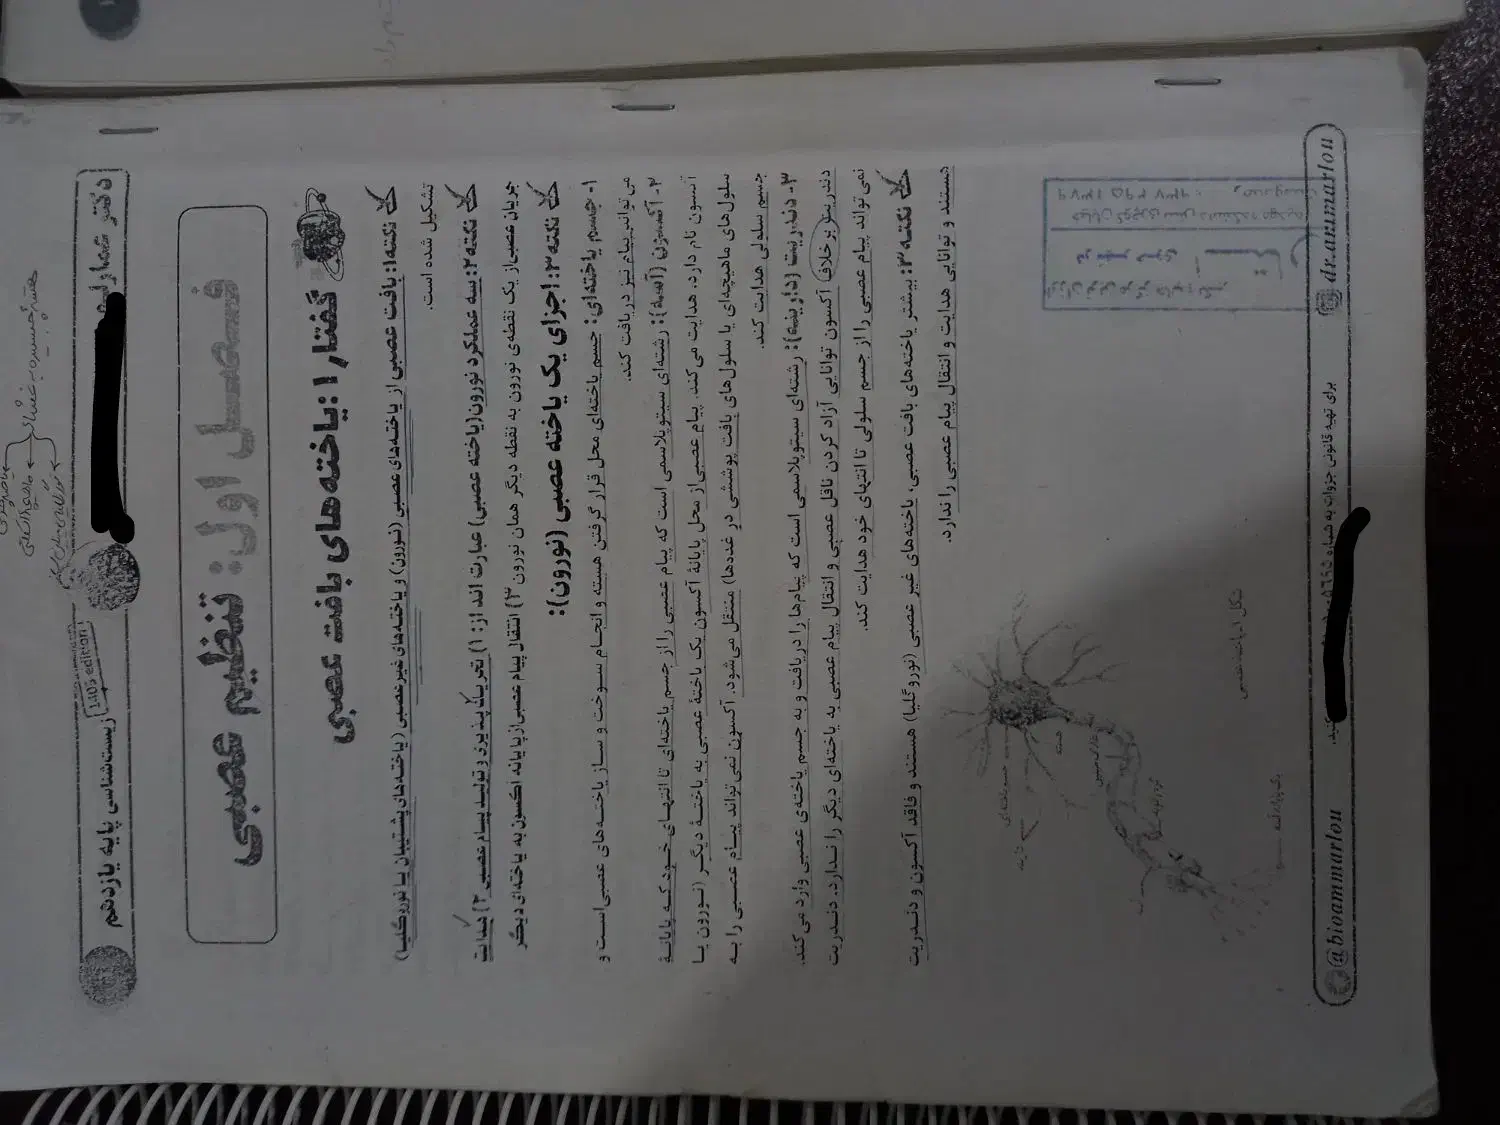 زیست‌شناسی پایه یازدهم
1405 edition
دکتر عمارلو
فصل اول: تنظیم عصبی
گفتار ۱: یاخته‌های بافت عصبی
نکته۱: بافت عصبی از یاخته‌های عصبی (نورون) و یاخته‌های غیرعصبی (یاخته‌های پشتیبان یا نوروگلیا)
تشکیل شده است.
نکته۲: سه عملکرد نورون(یاخته عصبی) عبارت اند از: ۱) تحریک پذیری و تولید پیام عصبی ۲) هدایت
جریان عصبی از یک نقطه‌ی نورون به نقطه دیگر همان نورون ۳) انتقال پیام عصبی از پایانه اکسون به یاخته‌ای دیگر
نکته ۳: اجزای یک یاخته عصبی (نورون):
۱- جسم یاخته‌ای: جسم یاخته‌ای محل قرار گرفتن هسته و انجام سوخت و ساز یاخته‌های عصبی‌است و
می‌تواند پیام نیز دریافت کند.
۲- آکسون (آسه): رشته‌ای سیتوپلاسمی است که پیام عصبی را از جسم یاخته‌ای تا انتهای خود که پایانهٔ
آکسون نام دارد، هدایت می‌کند. پیام عصبی از محل پایانهٔ آکسون یک یاختهٔ عصبی به یاختهٔ دیگر (نورون یا
سلول‌های ماهیچه‌ای یا سلول‌های بافت پوششی در غددها) منتقل می‌شود. آکسون نمی‌تواند پیام عصبی را به
جسم سلولی هدایت کند.
۳- دندریت (دارینه): رشته‌ای سیتوپلاسمی است که پیام‌ها را دریافت و به جسم یاخته‌ی عصبی وارد می‌کند.
دندریت برخلاف آکسون توانایی آزاد کردن ناقل عصبی و انتقال پیام عصبی به یاخته‌ای دیگر را ندارد. دندریت
نمی‌تواند پیام عصبی را از جسم سلولی تا انتهای خود هدایت کند.
نکته ۳: بیشتر یاخته‌های بافت عصبی، یاخته‌های غیر عصبی (نوروگلیا) هستند و فاقد آکسون و دندریت
هستند و توانایی هدایت و انتقال پیام عصبی را ندارد.
جسم یاخته‌ای
هسته
@bioammarlou
برای تهیه قانونی جزوات به شماره
کنید.
dr.ammarlou